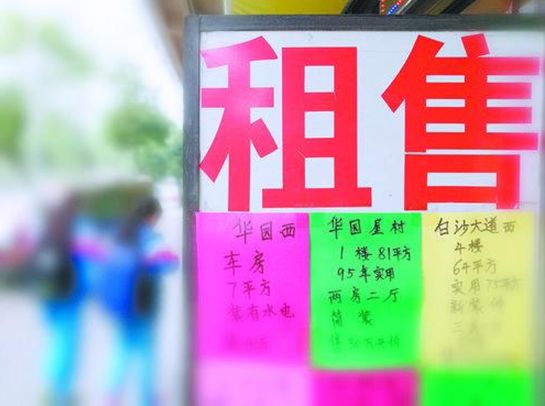 租售
华园西
车房
7平方
装有水电
华园星村
1楼 81平方
95年实用
两房二厅
简装
白沙大道西
4楼
64平方
实用75平方